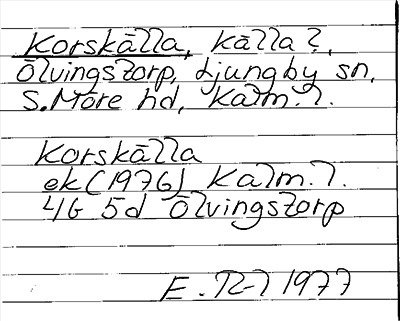 Korskälla, källa?,
Ölvingstorp, Ljungby sn,
S. Möre hd, Kalm. l.
Korskälla
ek (1976) Kalm. l.
4G 5d Ölvingstorp
E. 1977